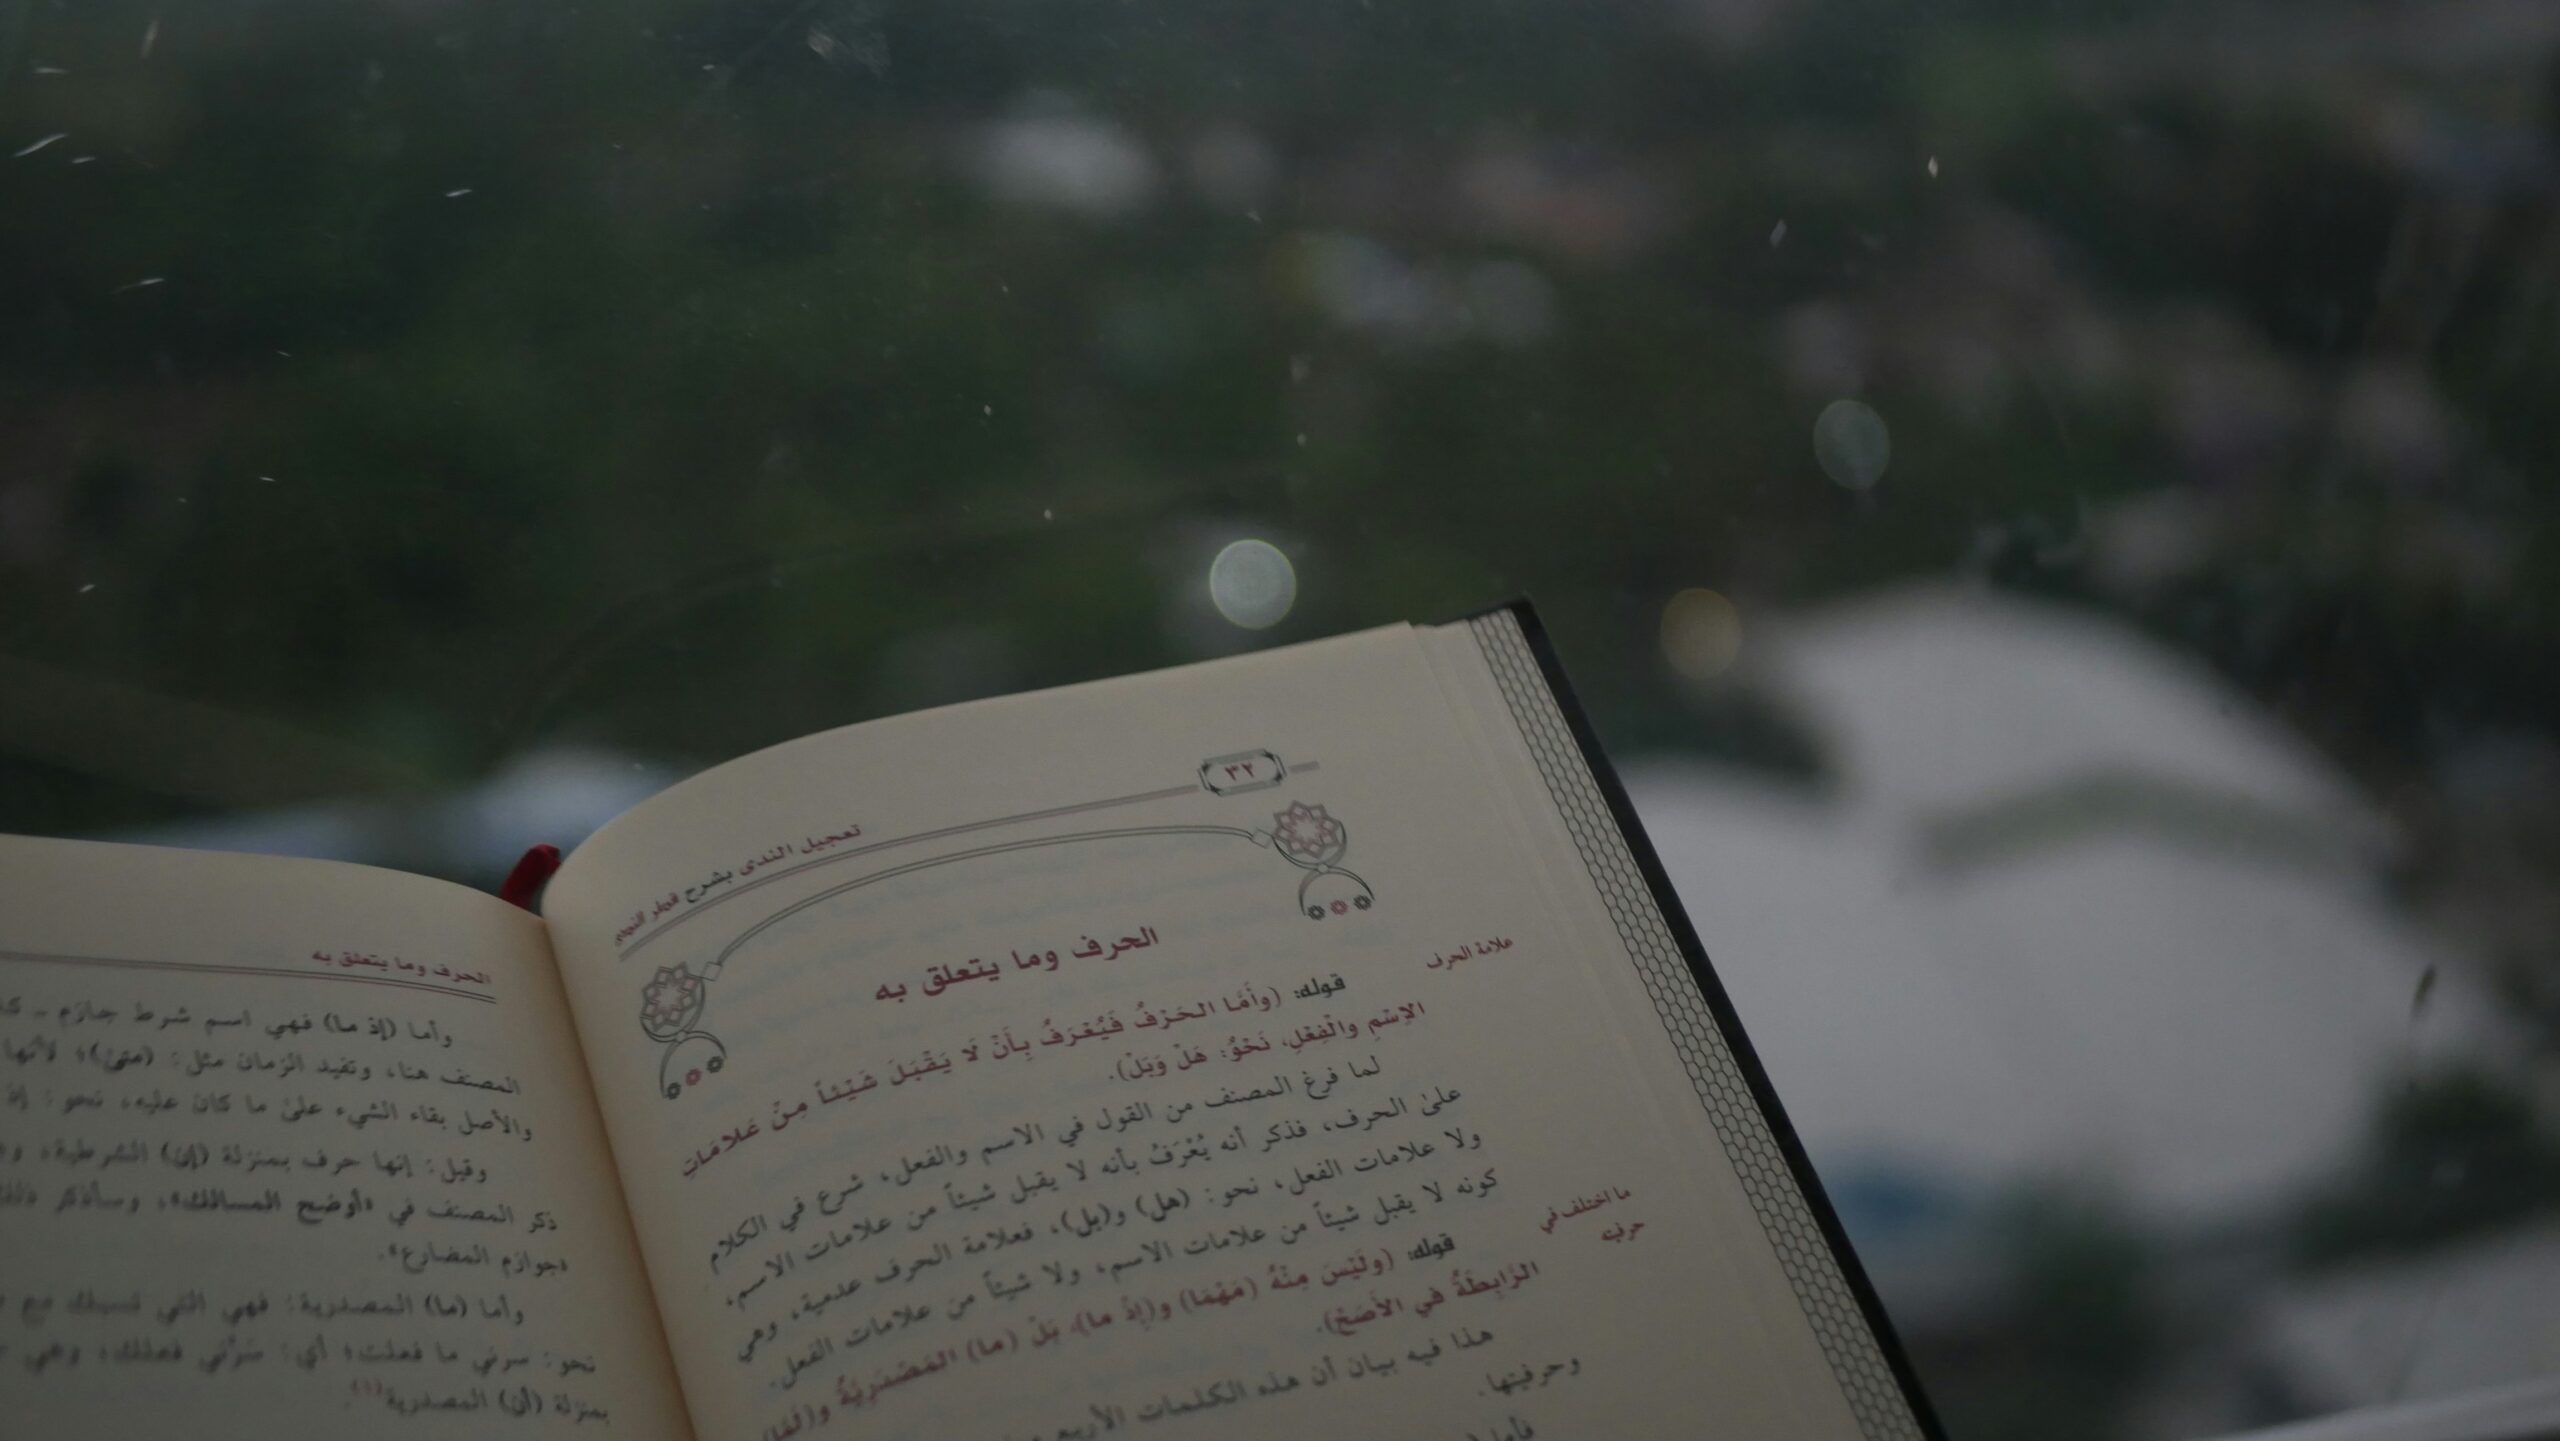 ٣٢
تعجيل الندى بشرح قطر الندى
الحرف وما يتعلق به
علامة الحرف
قوله: (وأَمَّا الحَرْفُ فَيُعْرَفُ بِأَنْ لَا يَقْبَلَ شَيْئاً مِنْ عَلامَاتِ
الاِسْمِ والْفِعْلِ، نَحْوُ: هَلْ وَبَلْ).
لما فرغ المصنف من القول في الاسم والفعل، شرع في الكلام
علىٰ الحرف، فذكر أنه يُعْرَفُ بأنه لا يقبل شيئاً من علامات الاسم،
ولا علامات الفعل، نحو: (هل) و(بل)، فعلامة الحرف عدمية، وهي
كونه لا يقبل شيئاً من علامات الاسم، ولا شيئاً من علامات الفعل.
ما اختلف في
حرفيته
قوله: (ولَيْسَ مِنْهُ (مَهْمَا) و(إِذْ ما)، بَلْ (ما) المَصْدَرِيَّةُ و(لَمَّا)
الرَّابِطَةُ في الأَصَحِّ).
هذا فيه بيان أن هذه الكلمات الأربع
وحرفيتها.
فأما
الحرف وما يتعلق به
وأما (إذ ما) فهي اسم شرط جازم ـ
المصنف هنا، وتفيد الزمان مثل: (متىٰ)؛ لأنها
والأصل بقاء الشيء علىٰ ما كان عليه، نحو: إذ
وقيل: إنها حرف بمنزلة (إن) الشرطية،
ذكر المصنف في «أوضح المسالك»، وسأذكر
«جوازم المضارع».
وأما (ما) المصدرية: فهي التي تسبك مع
نحو: سرني ما فعلت؛ أي: سَرَّني فعلك، وهي
بمنزلة (أن) المصدرية(١).